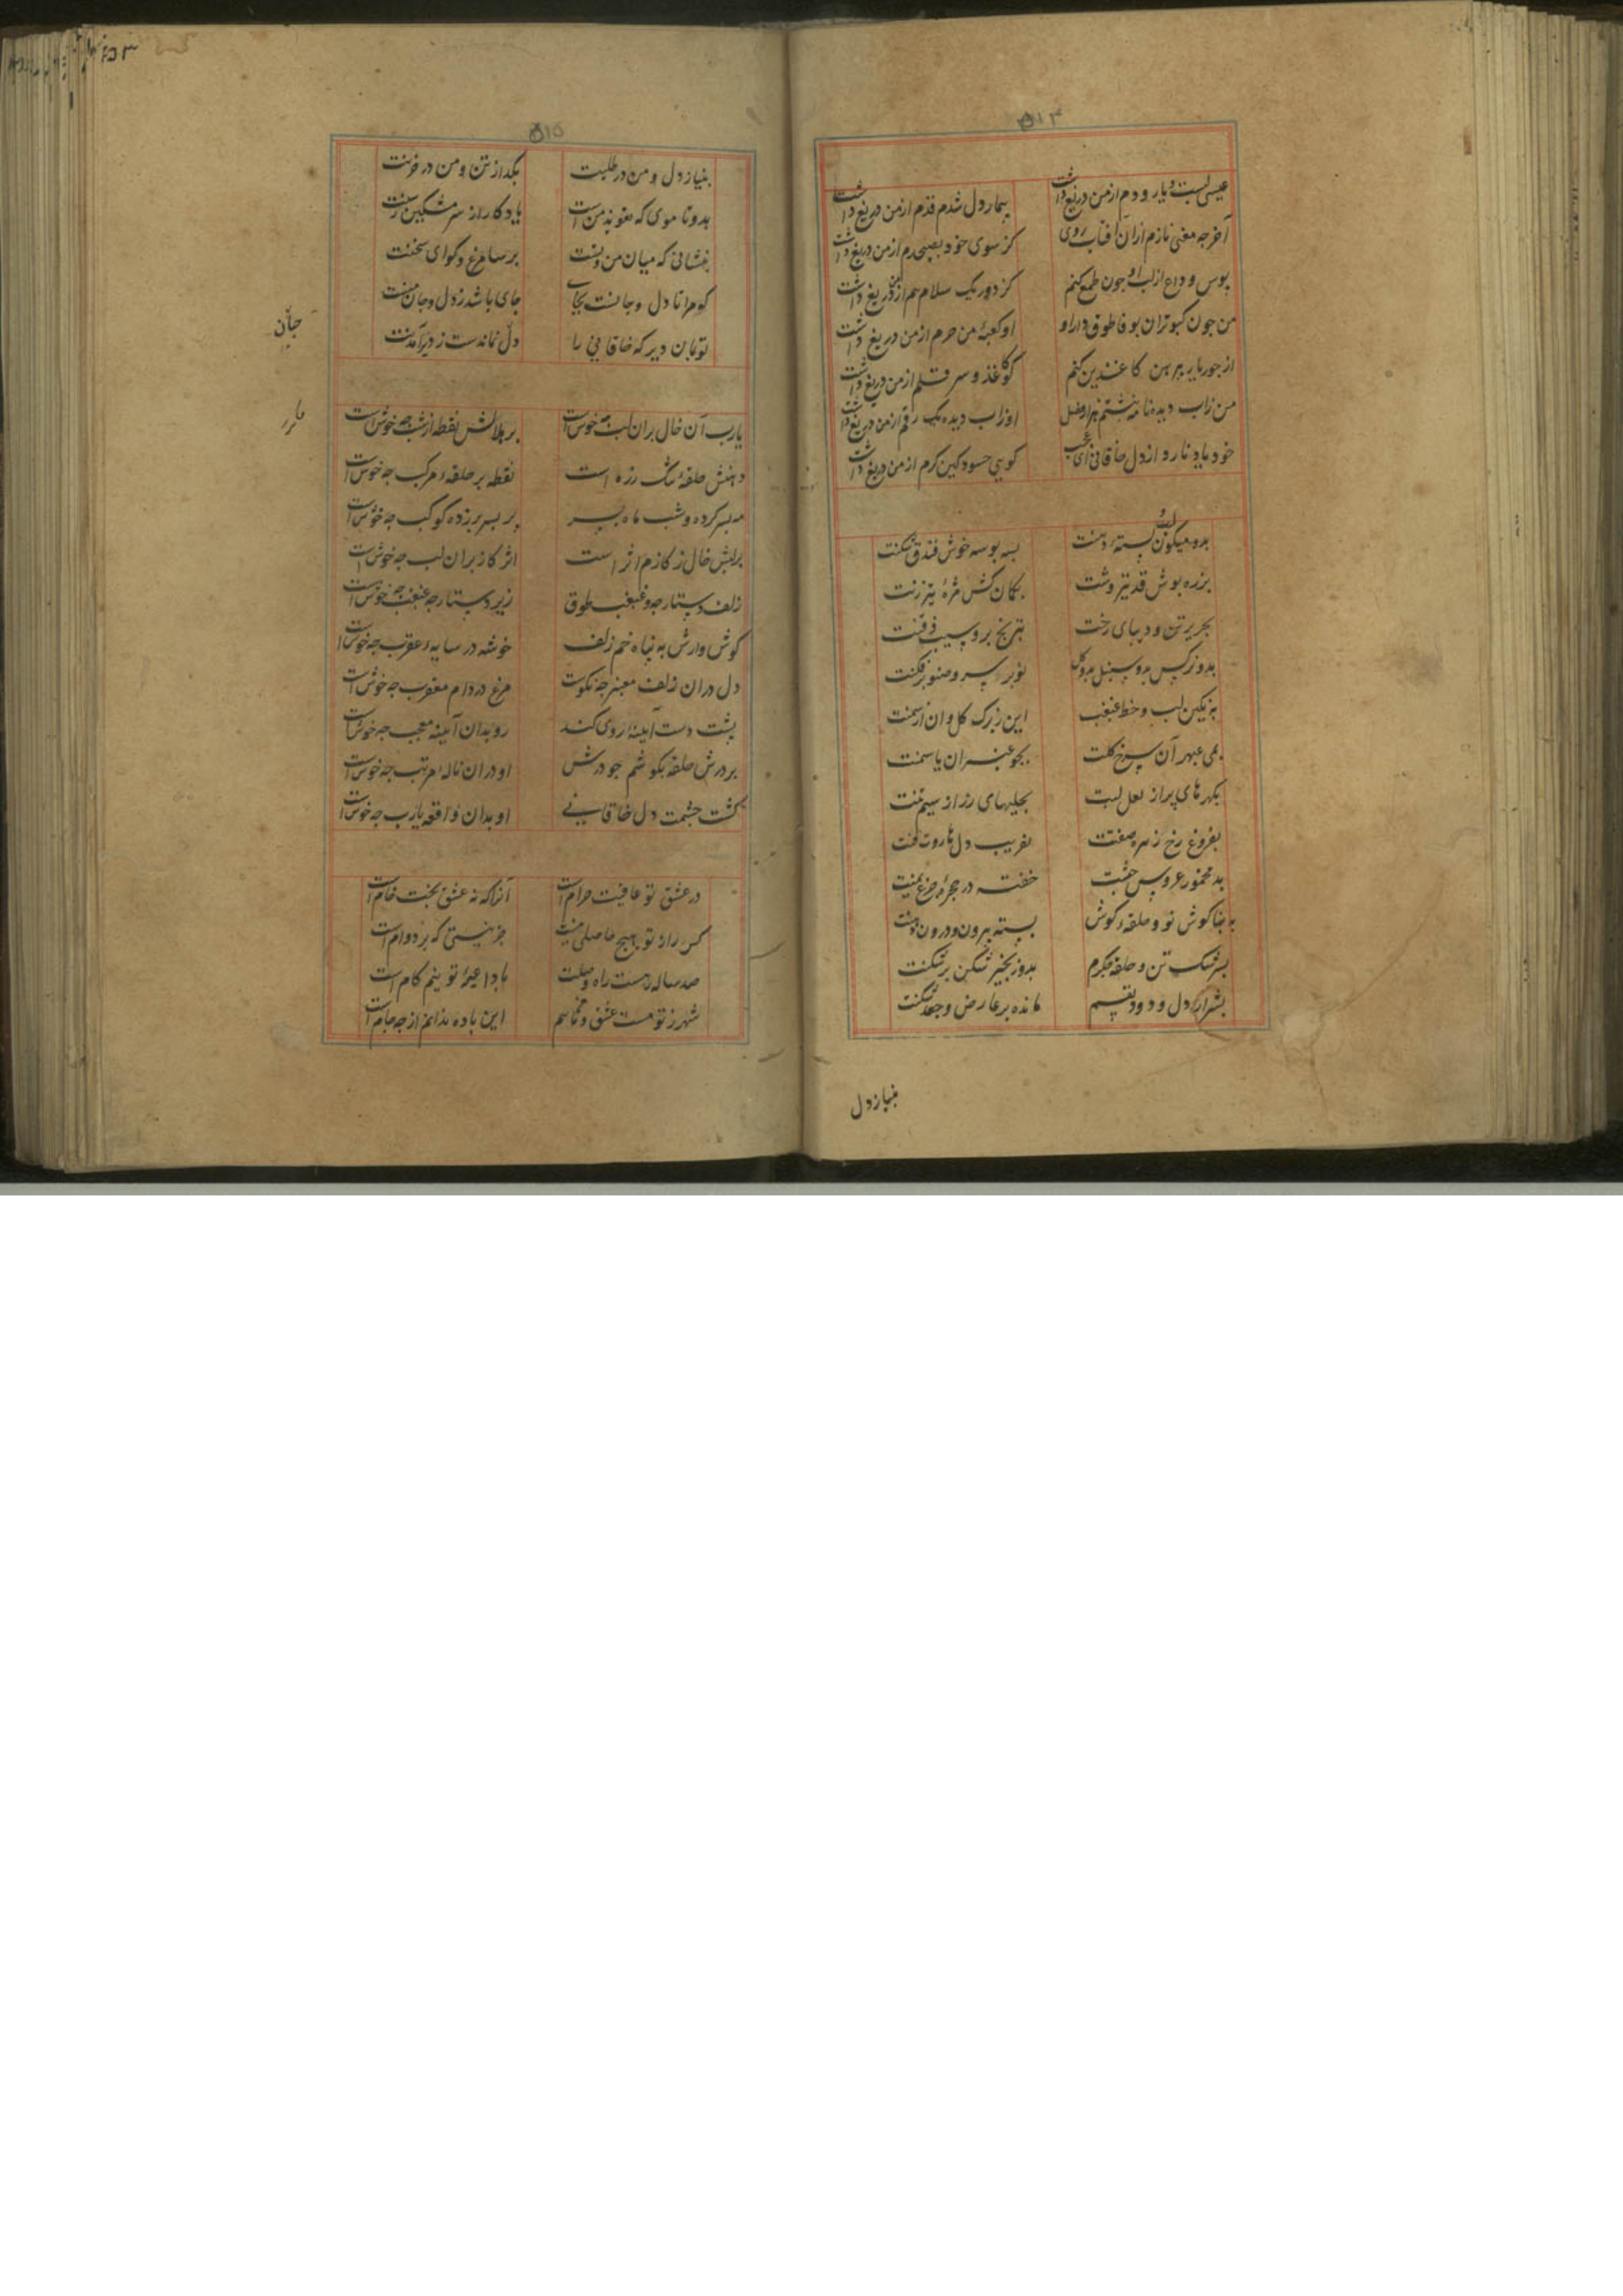 ۵۱۴
عیسی لبست و یار و دم از من دریغ داشت بیمار دل شدم قدم از من دریغ داشت
آخر چه معنی نازم ازان آفتاب روی کز سوی خود بصبحدم از من دریغ داشت
بوس و وداع از لب او چون طمع کنم کز دور یک سلام هم از من دریغ داشت
من چون کبوتران بوفا طوق دار او او کعبهٔ من حرم از من دریغ داشت
از جور یار پیرهن کاغذین کنم کو کاغذ و سر قلم از من دریغ داشت
من زاب دیده نامه نبشتم هزار فصل او زاب دیده یک رقم از من دریغ داشت
خود یاد نارد از دل خاقانی ای عجب گویی حسود کین کرم از من دریغ داشت
بدو میگون لب و پسته دهنت بسه بوسه خوش فندق شکنت
بزره پوش قد تیر وشت بکمان کش مژهٔ تیغ زنت
بحریر تن و دیبای رخت بترنج بر و سیب ذقنت
بدو نرگس بدو سنبل بدو گل بر سرو صنوبر فکنت
بنگین لب و خط غبغب این ز برگ گل و آن از سمنت
بمی عبهر آن سرخ گلت بجو عنبر آن یاسمنت
بگهرهای پر از لعل لبت بحلیهای زر از سیم تنت
بفروغ رخ زهره صفتت بفریب دل هاروت فنت
بدو مخمور عروس حبشت خفته در حجرهٔ جزع یمنت
به بناگوش تو و حلقه گوش بدو زنجیر شکن بر شکنت
بسرشک تن و حلقه جگرم بسته بیرون و درون دهنت
بشرار دل و دود نفسم مانده بر عارض و جعد شکنت
بنیاز دل
۵۱۵
بنیاز دل و من در طلبت بگداز تن و من در حزنت
بدو تا موی که تعویذ من است یادگار از سر مشکین رسنت
بنشانی که میان من و تست بر سا مرغ و گوای سخنت
که مرا تا دل و جانست بجای جای باشد ز دل و جان منت
تو بمان دیر که خاقانی را دل نماندست ز دیر آمدنت
جان
یارب آن خال بران لب چه خوش است بر هلالش نقطه از شب چه خوش است
دهنش حلقهٔ تنگ زره است نقطه بر حلقهٔ مرکب چه خوش است
مه بسر کرده و شب ماه سپر بر سپر بر زده کوکب چه خوش است
بر لبش خال ز گازم اثر است اثر گاز بران لب چه خوش است
زلف دستارچه و غبغب طوق زیر دستارچه غبغب چه خوش است
گوش وارش به پناه خم زلف خوشه در سایه عقرب چه خوش است
دل دران زلف معنبر چه نکوست مرغ در دام معقرب چه خوش است
پشت دست آینهٔ روی کند رو بدان آینه معجب چه خوش است
بر درش حلقه بگوشم چو درش او دران ناله مرتب چه خوش است
گشت چشمت دل خاقانی او بدان واقعه یارب چه خوش است
در عشق تو عافیت حرام است آنرا که نه عشق پخت خام است
کس را ز تو هیچ حاصلی نیست جز نیستی که بر دوام است
صد ساله رهست راه وصلت با داعیهٔ تو نیم گام است
شهر ز تو مست عشق و ما هم این باده ندانم از چه جام است